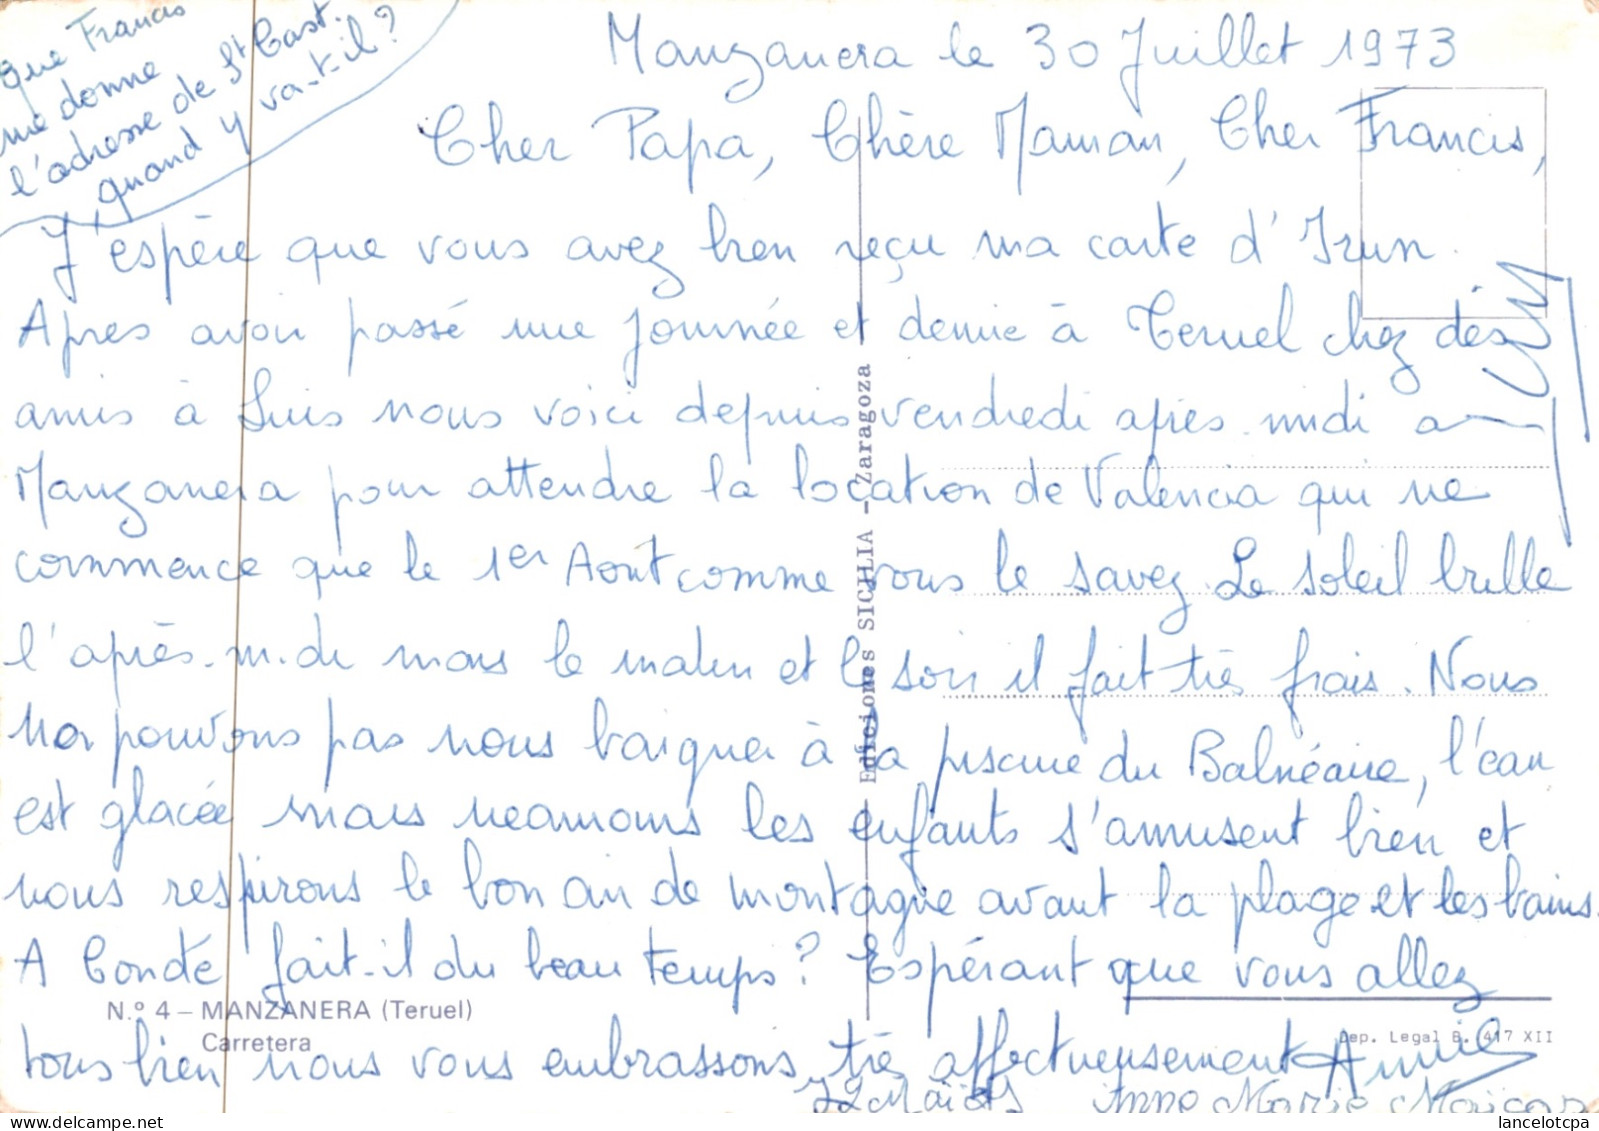 que Francis
me donne
l'adresse de St Cast.
quand y va-t-il?
Manzanera le 30 Juillet 1973
Cher Papa, Chère Maman, Cher Francis,
J'espère que vous avez bien reçu ma carte d'Irun.
Apres avoir passé une journée et demie à Teruel chez des
amis à Luis nous voici depuis vendredi après-midi a
Manzanera pour attendre la location de Valencia qui ne
commence que le 1er Aout comme vous le savez. Le soleil brille
l'après-midi mais le matin et le soir il fait très frais. Nous
ne pouvons pas nous baigner à la piscine du Balnéaire, l'eau
est glacée mais neamoins les enfants s'amusent bien et
nous respirons le bon air de montagne avant la plage et les bains.
A Condé fait-il du beau temps? Espérant que vous allez
tous bien nous vous embrassons très affectueusement Annie
Anne Marie
Ediciones SICILIA - Zaragoza
N.º 4 – MANZANERA (Teruel)
Carretera
Dep. Legal B. 417 XII
www.delcampe.net
lancelotcpa